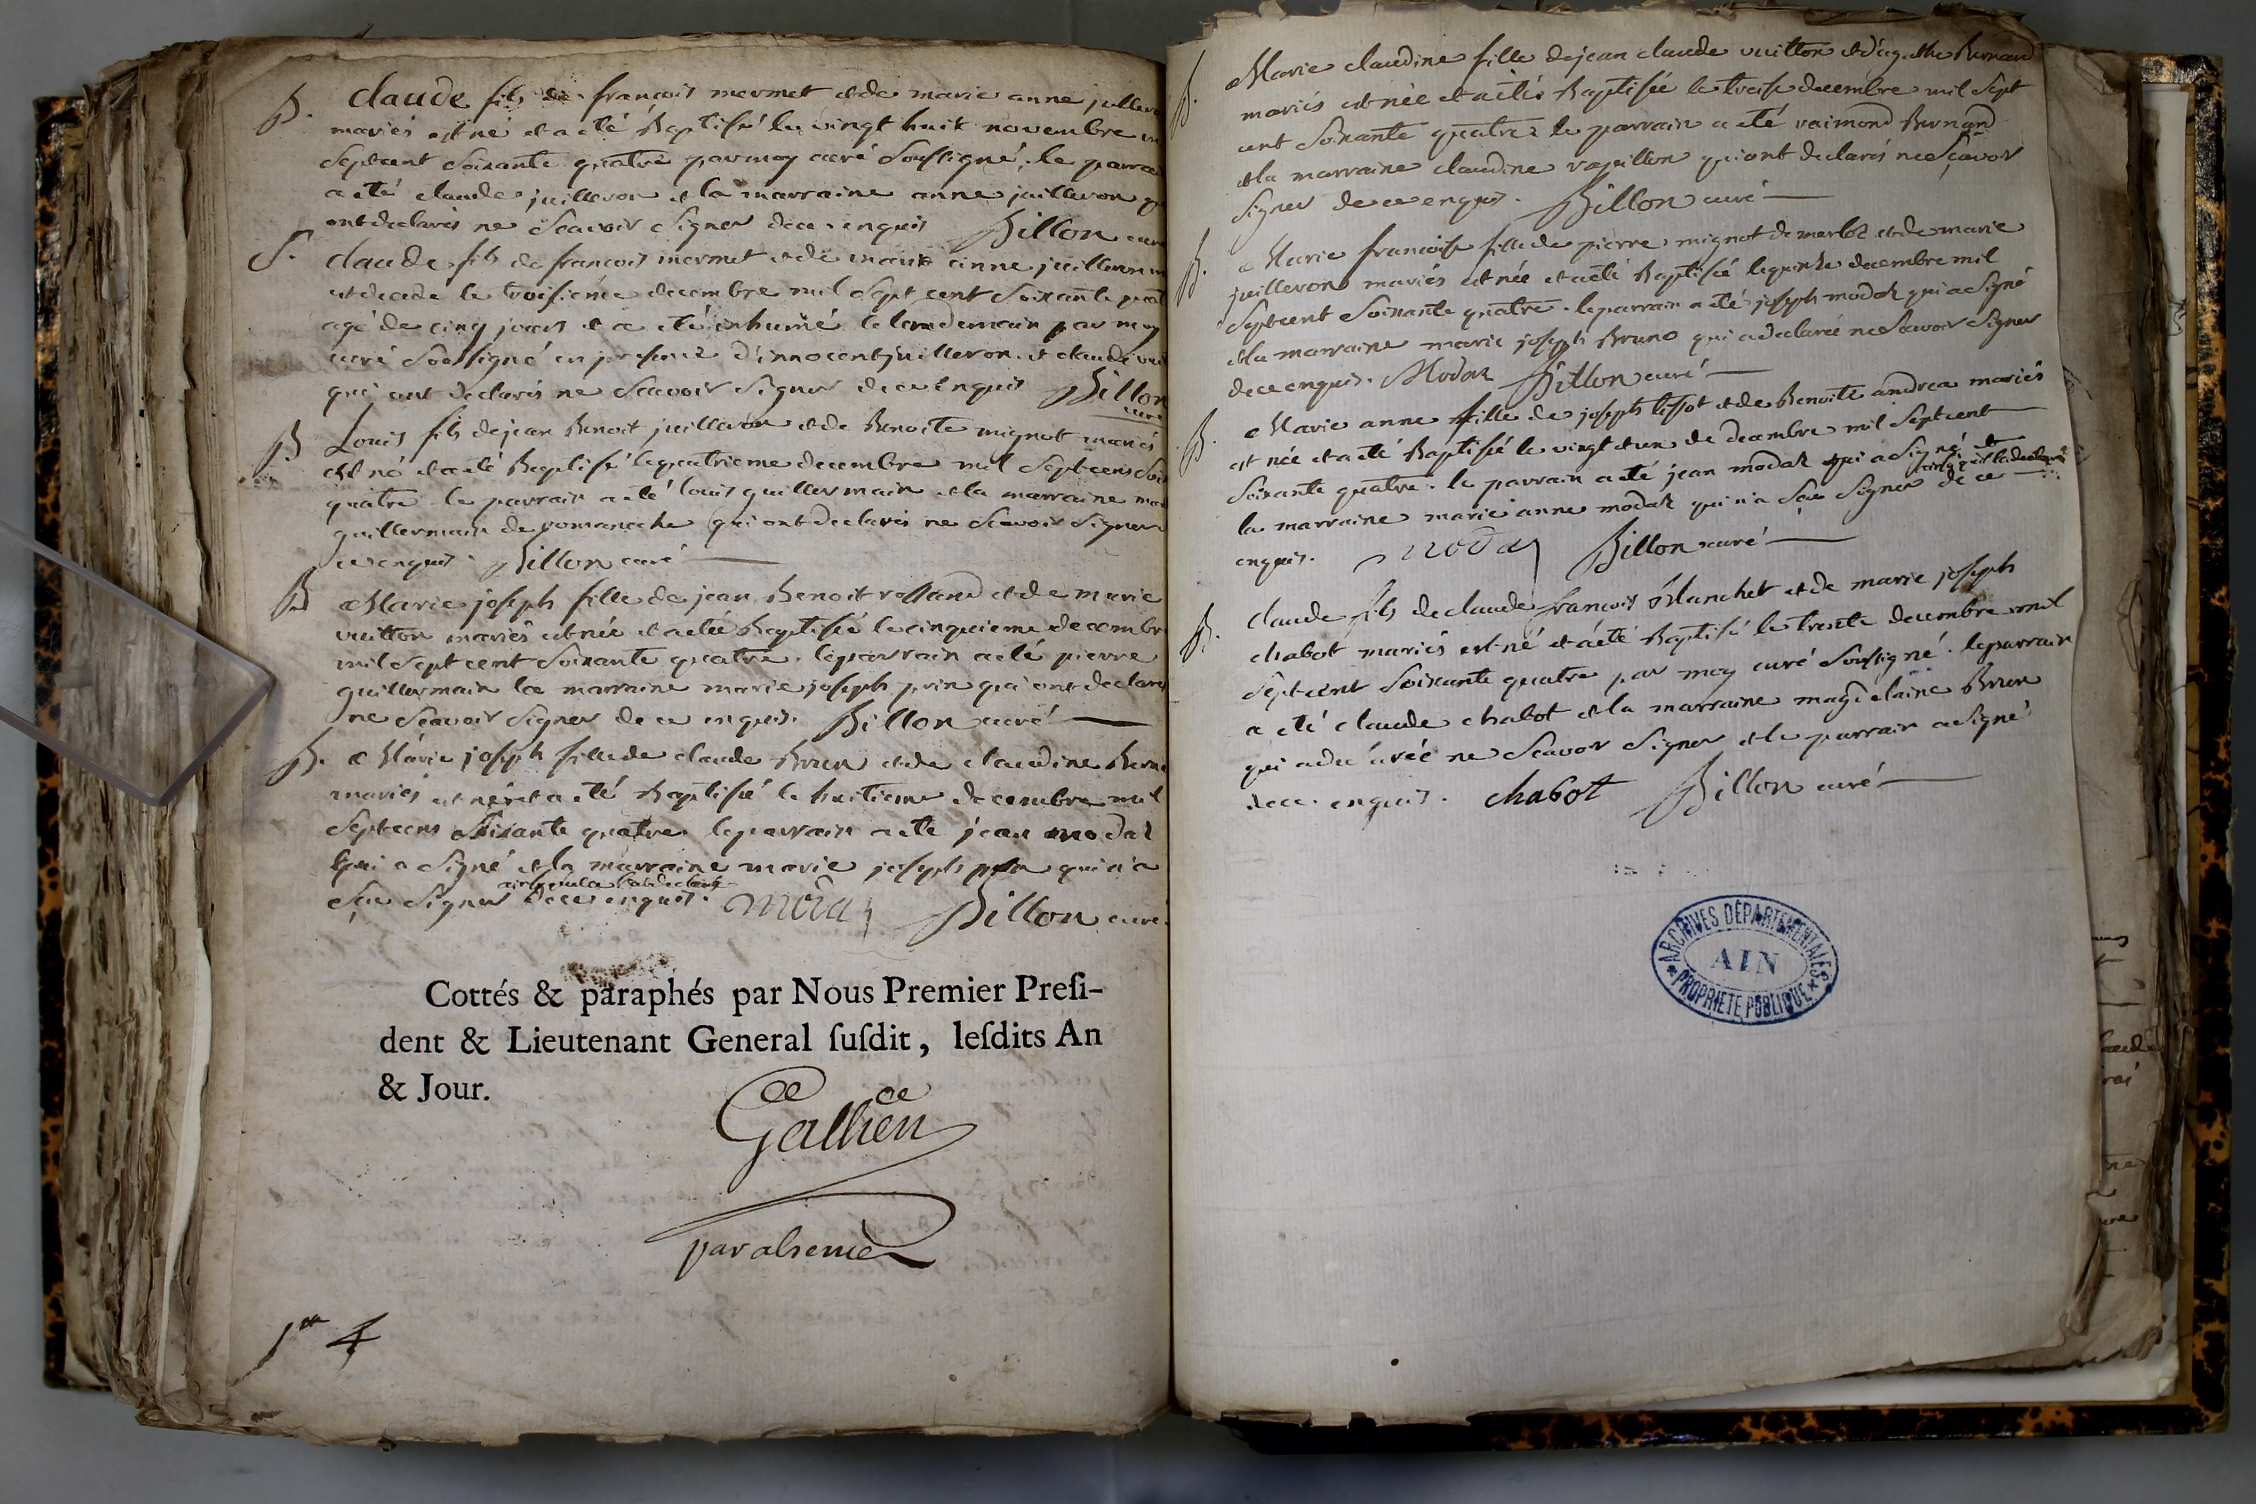 B. claude fils de françois mermet et de marie anne juillero
mariés est né et a eté Baptisé le vingt huit novembre
Septcent Soixante quatre par moy curé Soussigné, le parrai
a eté claude juilleron et la marraine anne juilleron
ont declarés ne Scavoir Signer de ce enquis Billon curé
S. claude fils de françois mermet et de marie anne juilleron
est decedé le troisième decembre mil Sept cent Soixante quat
agé de cinq jours et a eté inhumé le lendemain par moy
curé Soussigné en presence d'innocent juilleron et claude
qui ont declarés ne Scavoir Signer de ce enquis Billon
curé
B Louis fils de jean Benoit juilleron et de Benoite mignot mariés
est né et a eté Baptisé le quatrieme decembre mil Septcens Soix
quatre le parrain a eté louis guillermain et la marraine
guillermain de romaneche qui ont declarés ne Scavoir Signer
ce enquis. Billon curé
B Marie joseph fille de jean Benoit rolland et de marie
vuitton mariés est née et a eté Baptisée le cinquieme decembre
mil Sept cent Soixante quatre. le parrain a eté pierre
guillermain la marraine marie joseph prin qui ont declarés
ne Scavoir Signer de ce enquis. Billon curé
B. Marie joseph fille de claude Brun et de claudine Berna
mariés est née et a eté Baptisée le huitieme decembre mil
Septcens Soixante quatre le parrain a eté jean modas
qui a Signé et la marraine marie joseph prin qui n'a
Scu Signer de ce enquis. Billon curé
Cottés & paraphés par Nous Premier Preſi-
dent & Lieutenant General ſuſdit, leſdits An
& Jour.
Gallien
par absence
4
B. Marie claudine fille de jean claude vuitton et d'agathe Bernard
mariés est née et a eté Baptisée le treise decembre mil Sept
cent Soixante quatre le parrain a eté raimond Bernard
et la marraine claudine vapillon qui ont declarés ne Scavoir
Signer de ce enquis. Billon curé
B. Marie francoise fille de pierre mignot de marboz et de marie
juilleron mariés est née et a eté Baptisée le quinze decembre mil
Septcent Soixante quatre. le parrain a eté joseph modas qui a Signé
et la marraine marie joseph Bruno qui a declarée ne Scavoir Signer
de ce enquis. Modas Billon curé
B. Marie anne fille de joseph tissot et de Benoite andrea mariés
est née et a eté Baptisée le vingt et un de decembre mil Septcent
Soixante quatre. le parrain a eté jean modas qui a Signé et
la marraine marie anne modas qui n'a Scu Signer de ce
enquis. modas Billon curé
B. claude fils de claude francois Blanchet et de marie joseph
chabot mariés est né et a eté Baptisé le trente decembre mil
Septcent Soixante quatre par moy curé Soussigné. le parrain
a eté claude chabot et la marraine magdelaine Brun
qui a declarée ne Scavoir Signer et le parrain a Signé
de ce enquis. chabot Billon curé
ARCHIVES DÉPARTEMENTALES
AIN
PROPRIÉTÉ PUBLIQUE